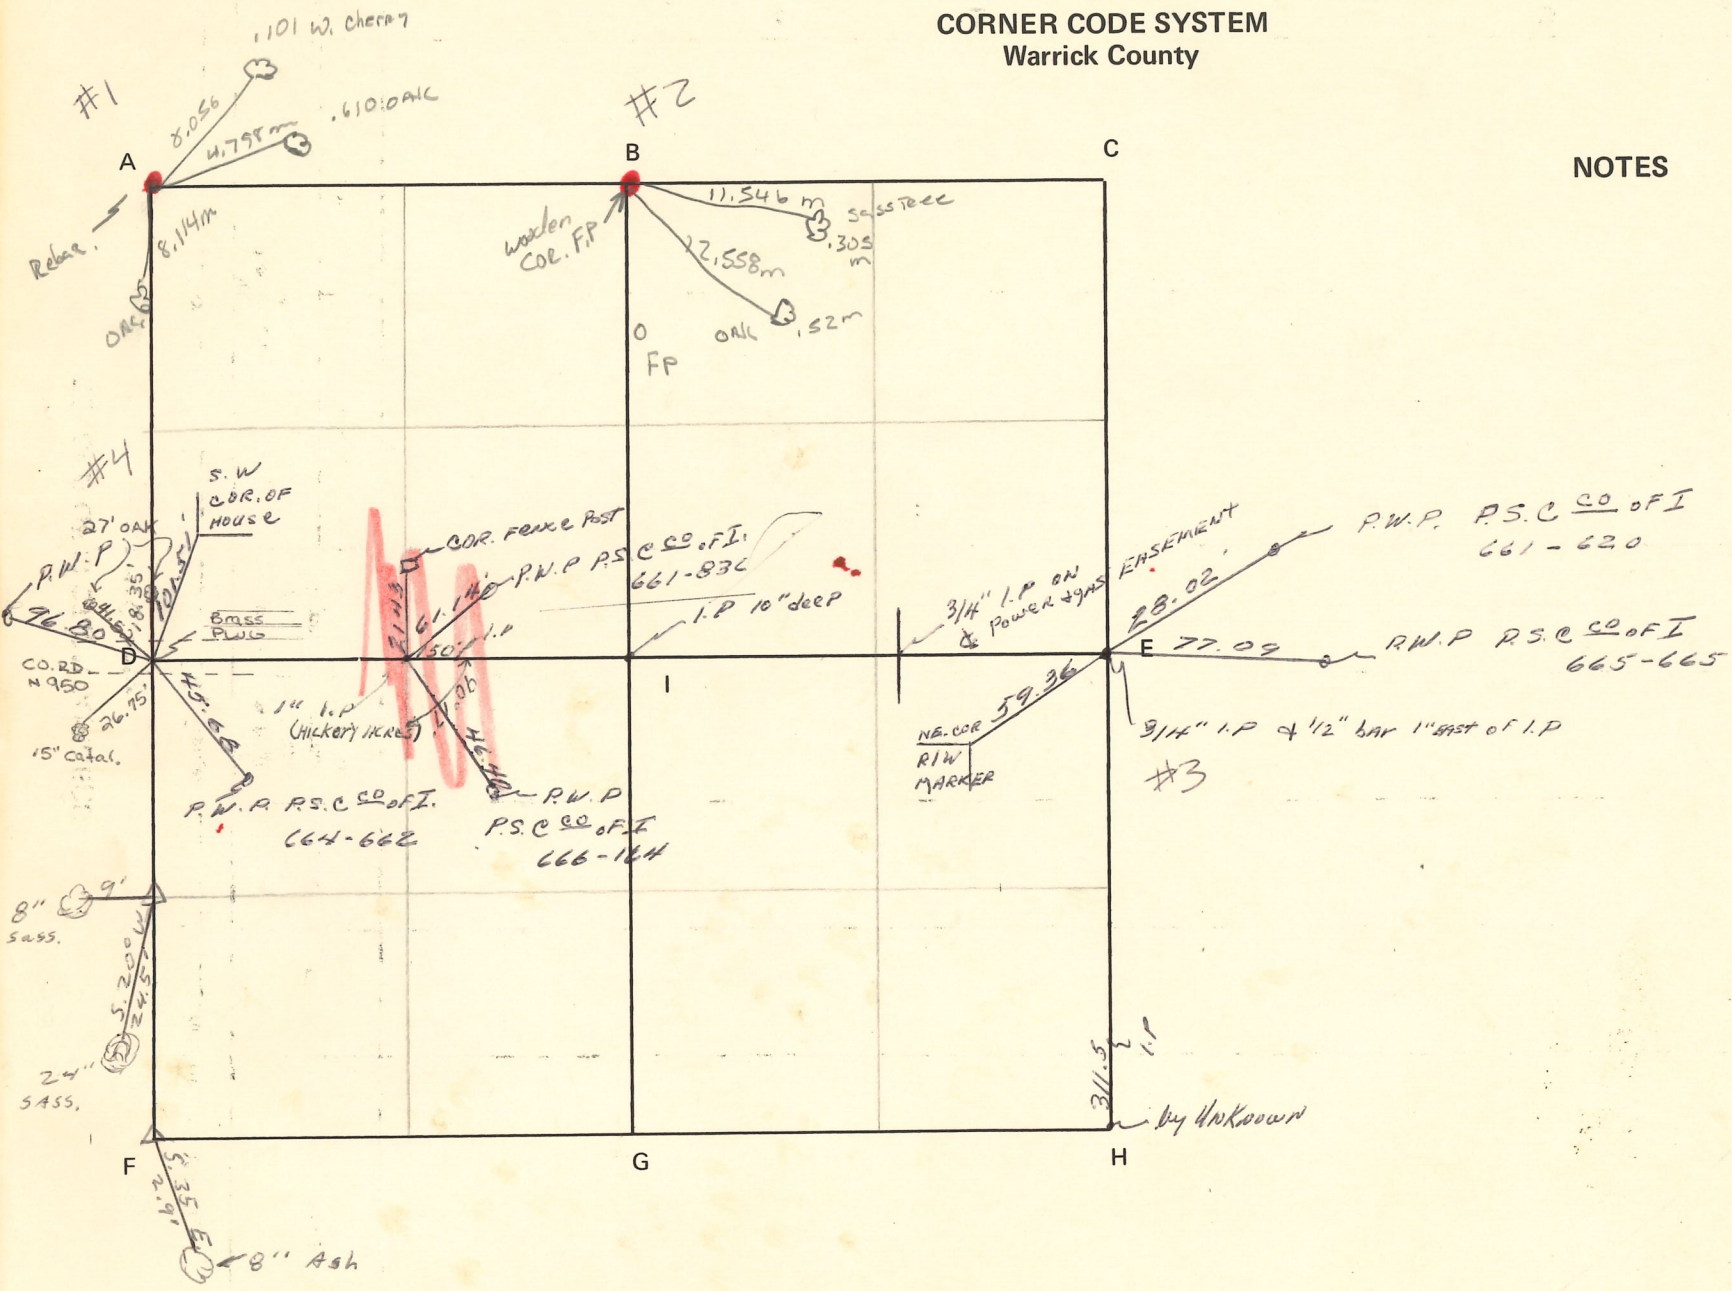 CORNER CODE SYSTEM
Warrick County
NOTES
.101 W. Cherry
#1
8.056
4.798m
.610 OAK
A
Rebar.
8.114m
OAK
#2
B
C
11.546 m
sassTree
.305
m
wooden
COR. F.P
12.558m
OAK
.52m
O
FP
#4
S. W
COR. OF
House
27' OAK
P.W.P
96.80
18.35'
Brass
PLUG
D
CO. RD
N 950
26.75'
15" Catal.
45.68
P.W.P. P.S.C CO OF I.
664-662
COR. Fence Post
21.43
61.14'
P.W.P P.S.C CO. OF I.
661-836
50'
I.P
90
1" I.P
(Hickory Acres)
46.46
P.W.P
P.S.C CO OF I
666-164
I.P 10" deep
I
3/4" I.P ON
₵ Power & gas EASEMENT
P.W.P. P.S.C CO OF I
661-620
28.02
E
77.09
P.W.P P.S.C CO OF I
665-665
59.36
NE. COR
R/W
MARKER
3/4" I.P & 1/2" bar 1" EAST of I.P
#3
9'
8"
sass.
S. 20° W
24.5'
24"
SASS.
311.5
I.P
by UNKnown
F
G
H
S. 35 E.
2.9'
8" Ash